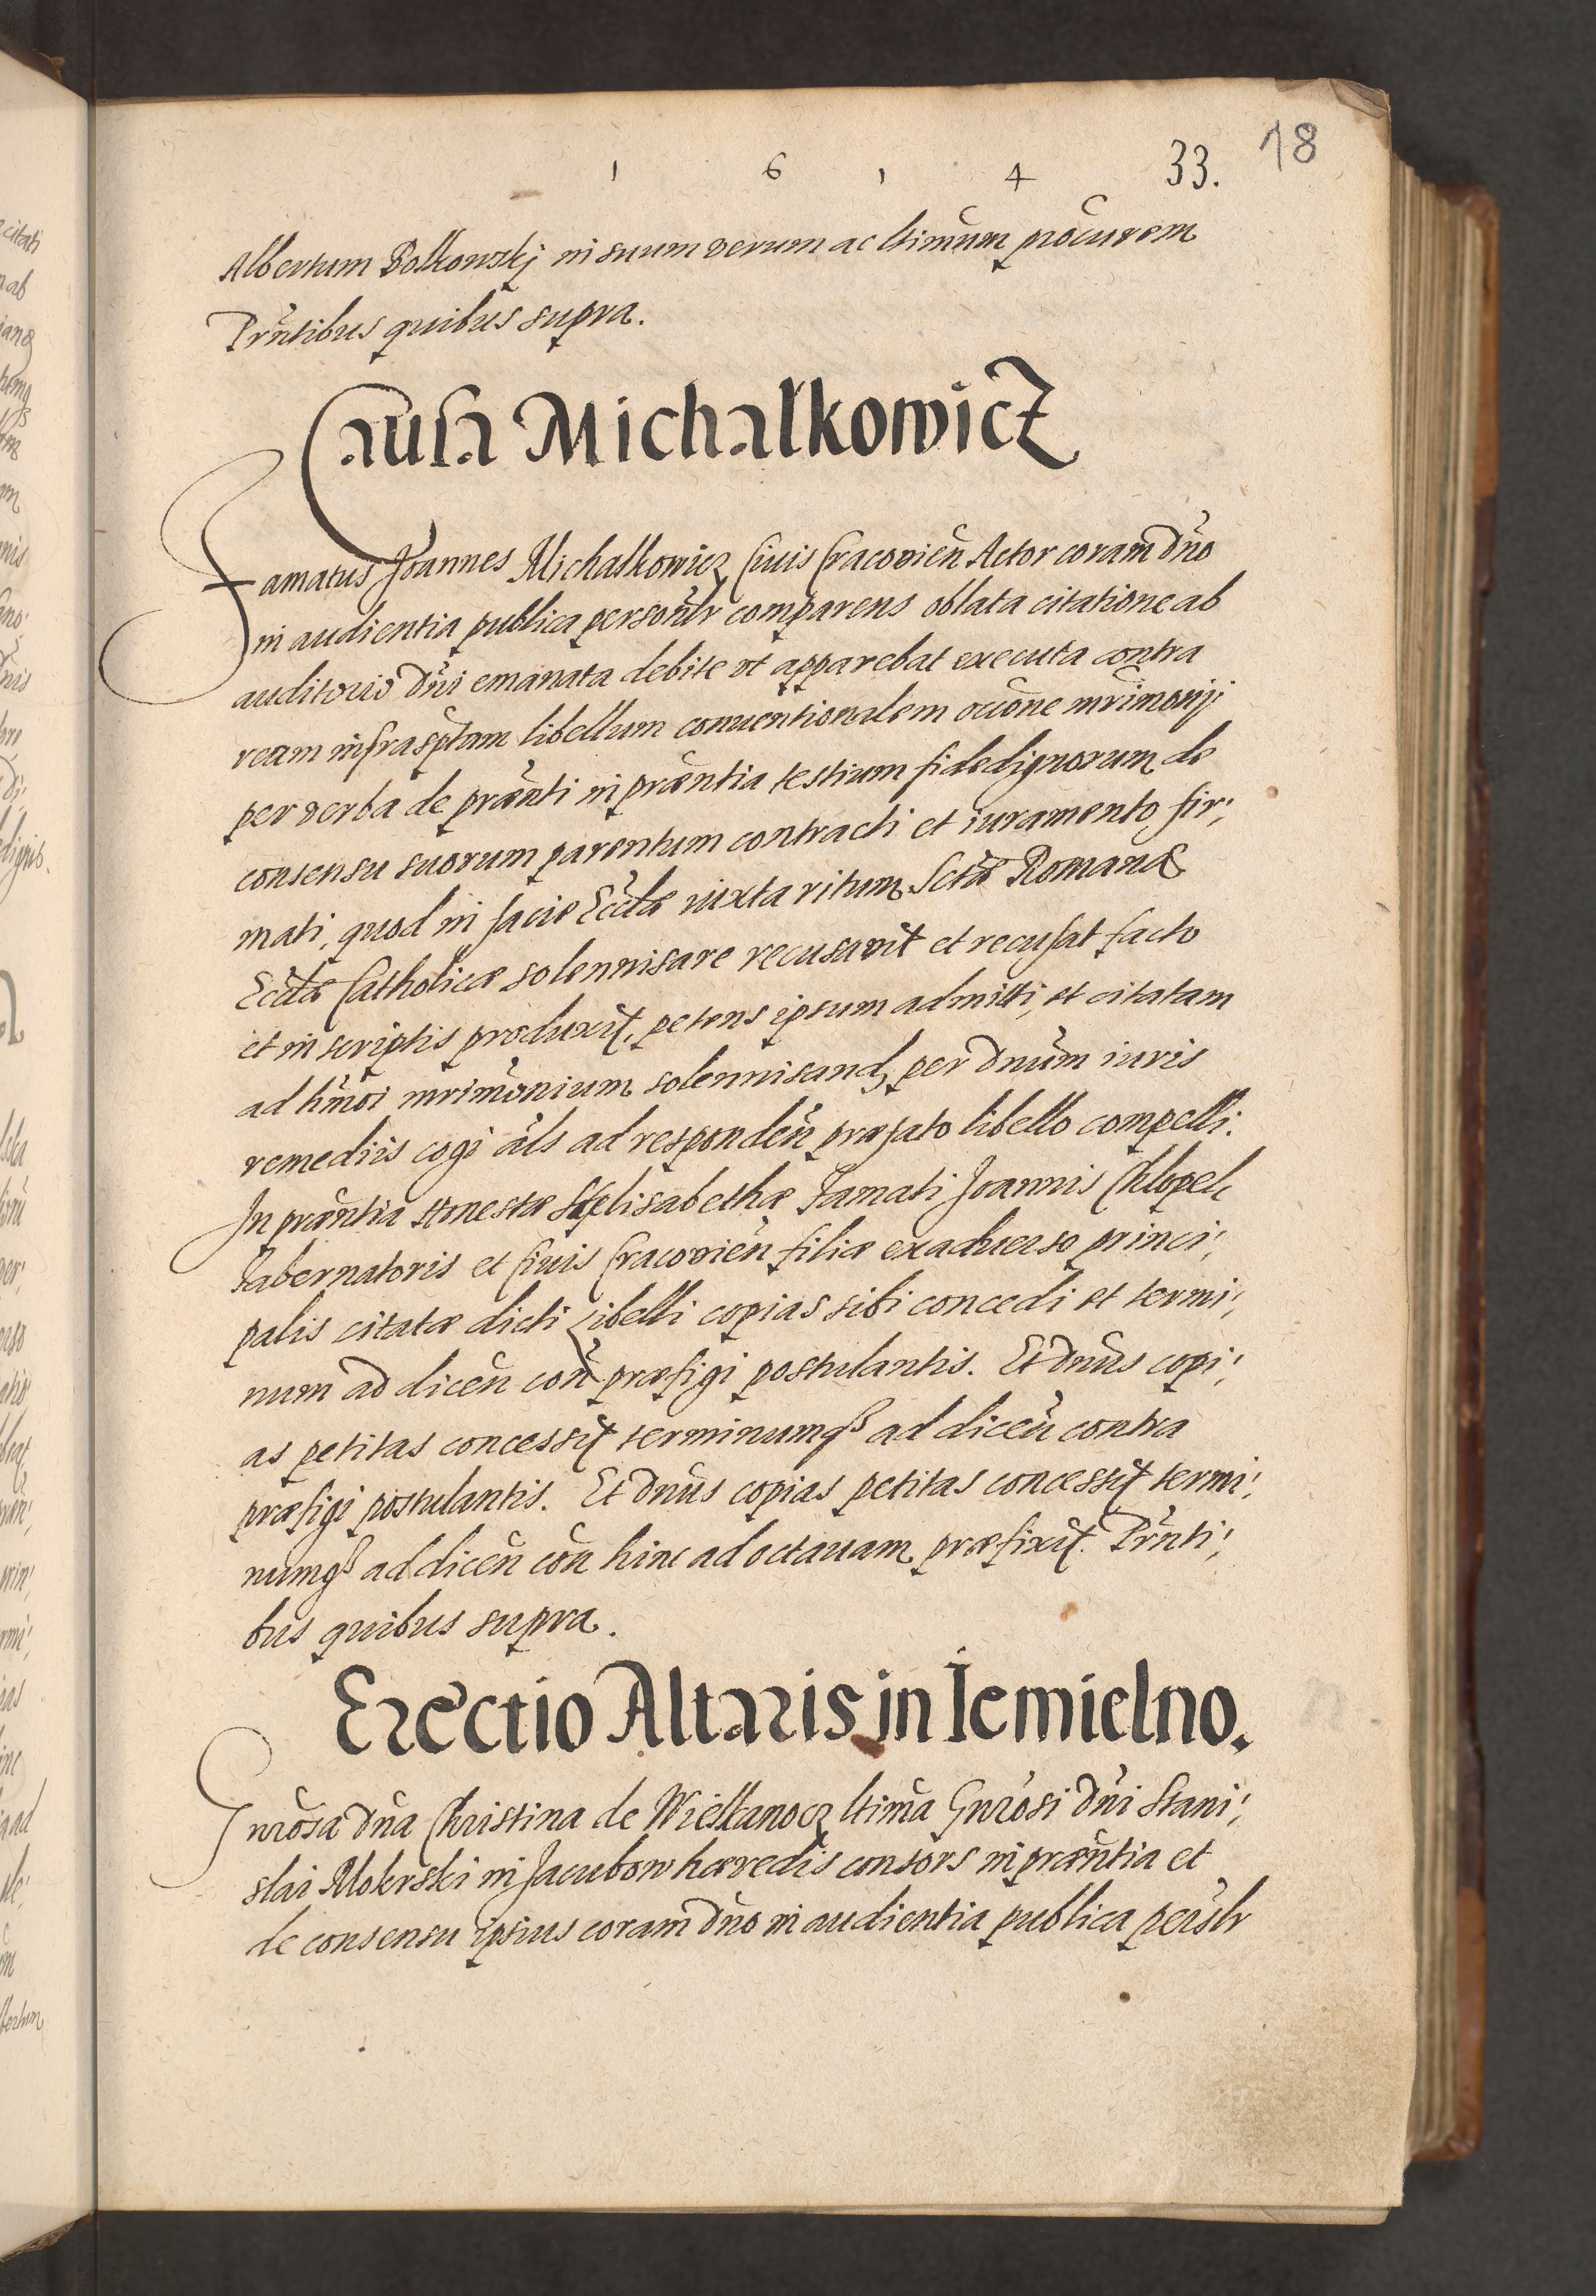 1 6 1 4 33. 18
Albertum Bolkowskj in suum verum ac ltimum procurem
Prntibus quibus supra.
Causa Michalkowicz
Famatus Joannes Michalkowicz Civis Cracovien Actor coram Dno
in audientia publica personlr comparens oblata citatione ab
auditorio Dni emanata debite ut apparebat executa contra
ream infrasptam libellum conventionalem ocione mrimonij
per verba de præsnti in præntia testium fidedignorum de
consensu suorum parentum contracti et iuramento fir,
mati, quod in facie Ecclæ iuxta ritum Sctæ Romanæ
Ecclæ Catholicæ solennisare recusavit et recusat facto
et in scriptis produxit, petens ipsum admitti, et citatam
ad hmoi mrimonium solennisand, per Dnum iuris
remediis cogi als ad responden præfato libello compelli.
In præntia Honestæ Elisabethæ Famati Joannis Chlopek
Tabernatoris et Civis Cracovien filiæ ex adverso princi,
palis citatæ dicti Libelli copias sibi concedi et termi,
num ad dicen con præfigi postulantis. Et Dnus copi,
as petitas concessit terminumq ad dicen contra
præfigi postulantis. Et Dnus copias petitas concessit termi,
numq ad dicen con hinc ad octavam præfixit. Prnti,
bus quibus supra.
Erectio Altaris in Iemielno.
Gnrosa Dna Christina de Wielkanocz ltima Gnrosi Dni Stani,
slai Mokrski in Jacubow hæredis consors in præntia et
de consensu ipsius coram Dno in audientia publica perslr